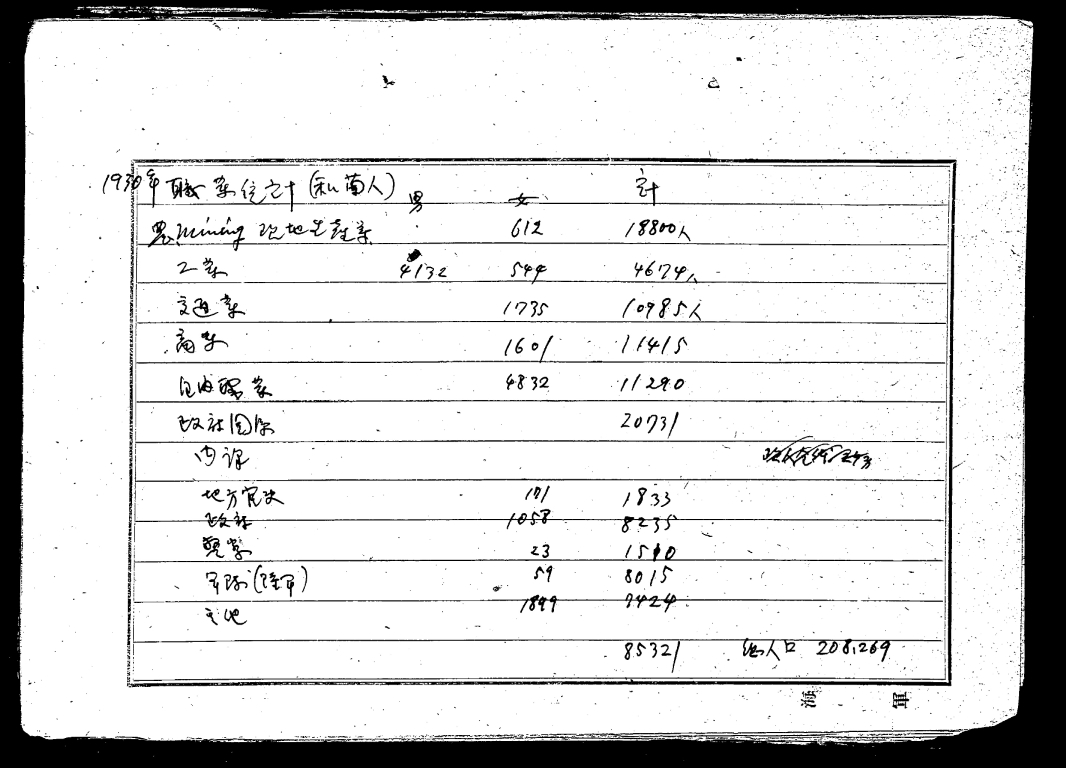 1930年 職業統計(和蘭人) 男 女 計
農 mining 現地生産業 612 18800人
工業 4132 544 4674人
交通業 1735 10985人
商業 1601 11415
自由職業 4832 11290
政府関係 20731
内訳
地方官吏 171 1833
政府 1058 8235
警察 23 1510
軍隊(陸軍) 59 8015
その他 1899 7424
85321 総人口 208,269
海 軍